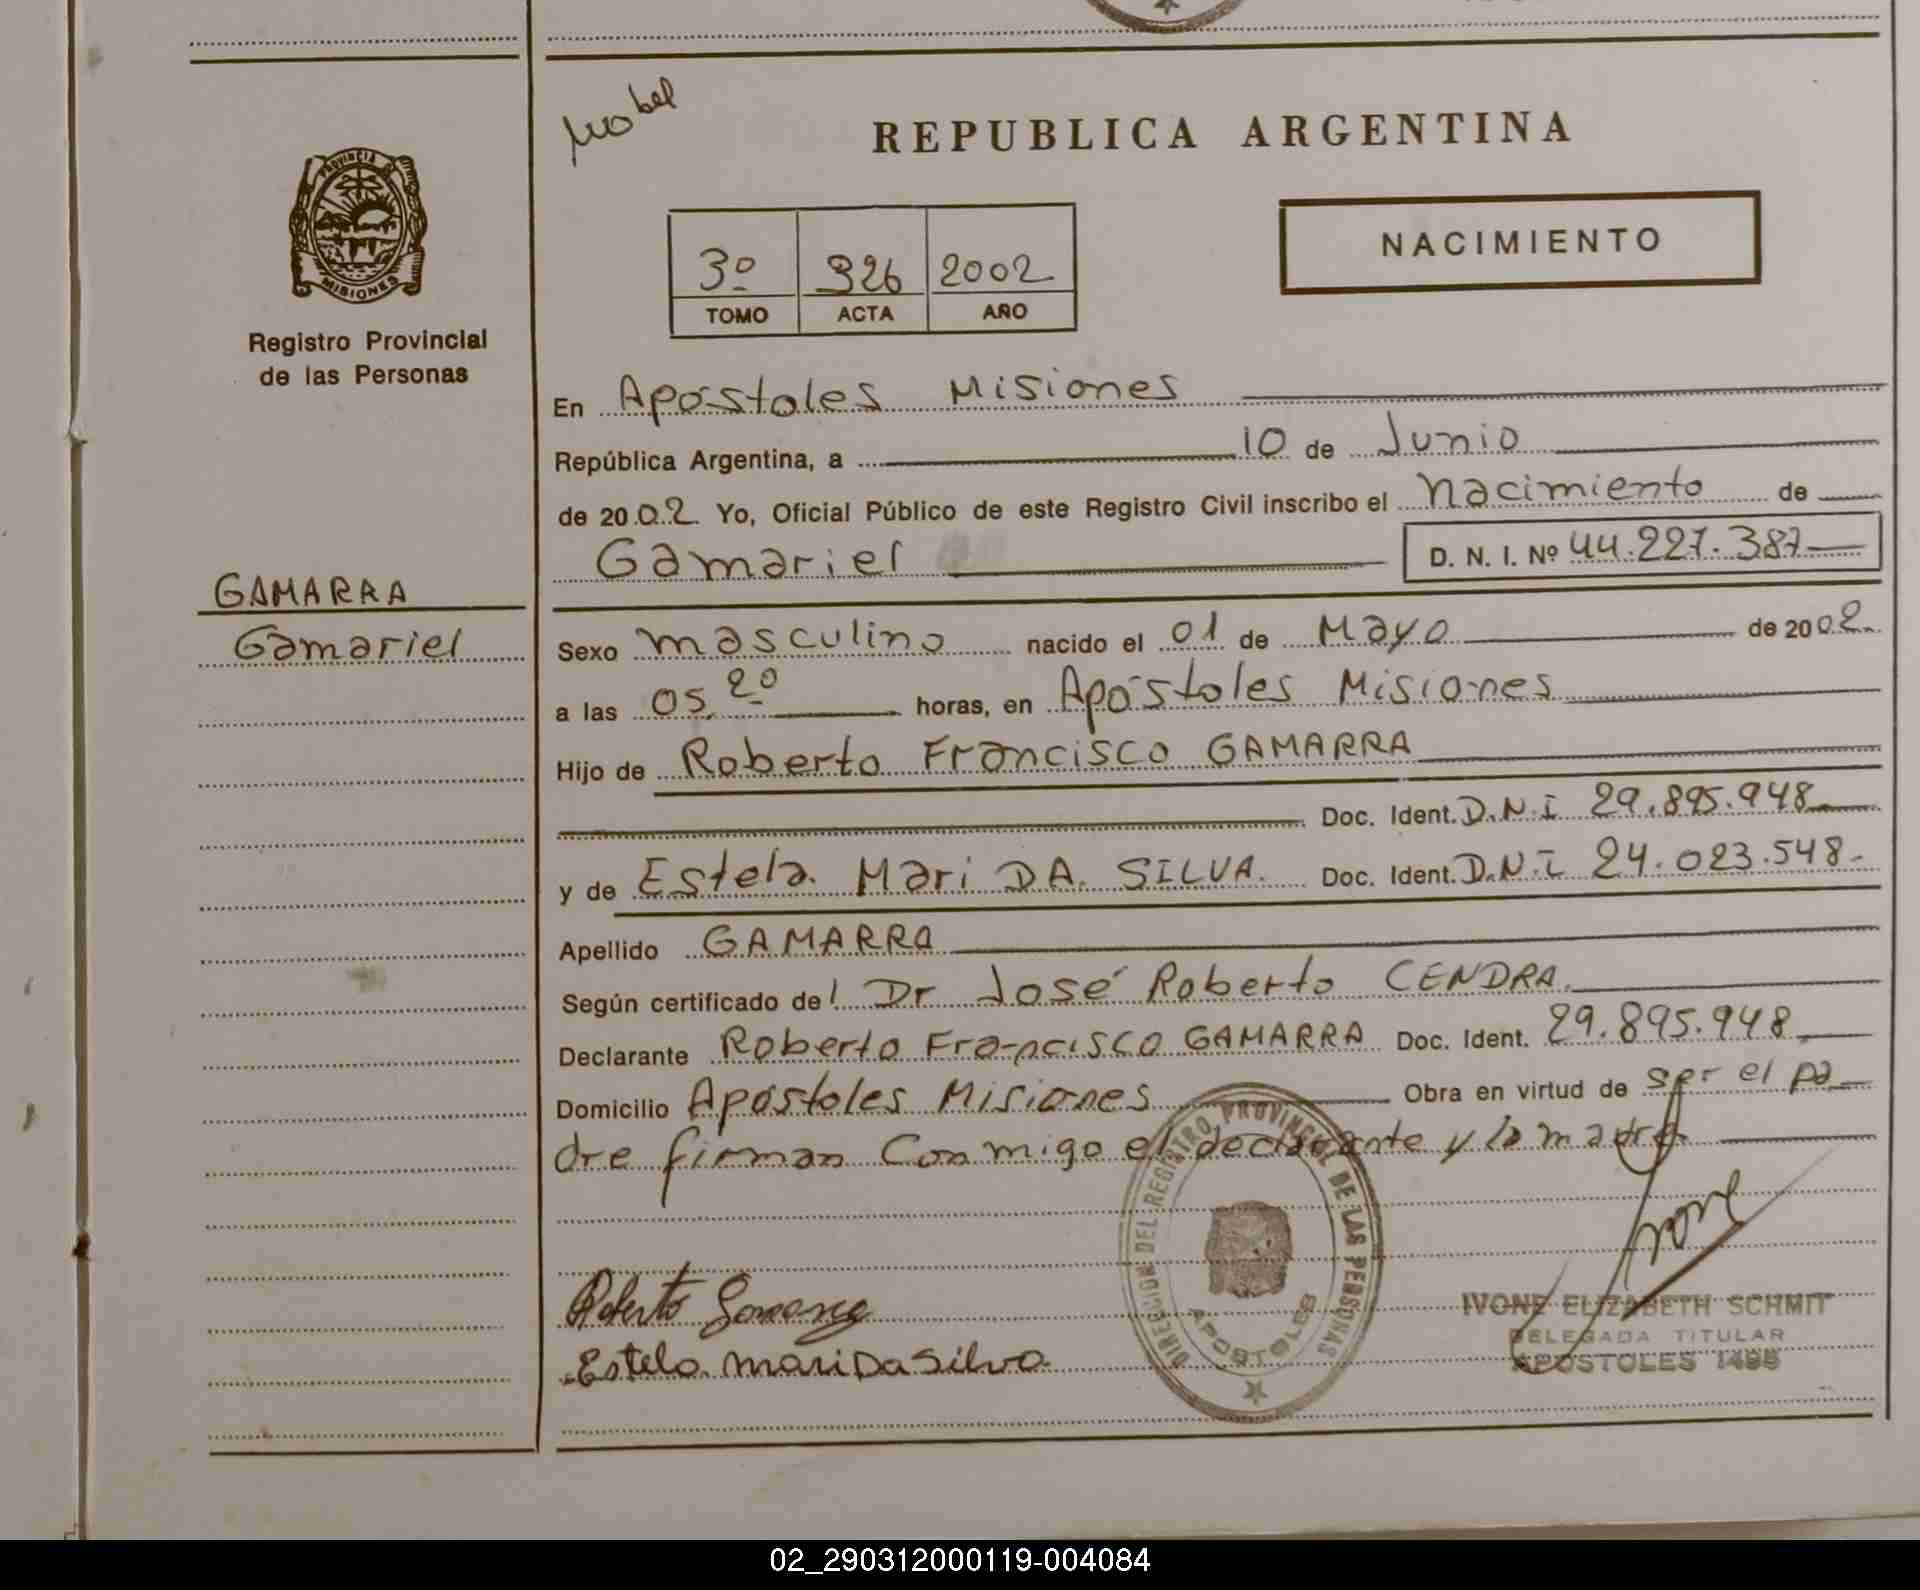 REPUBLICA ARGENTINA
PROVINCIA DE
MISIONES
Registro Provincial
de las Personas
3º 326 2002
TOMO ACTA AÑO
NACIMIENTO
En Apóstoles Misiones
República Argentina, a 10 de Junio
de 2002 Yo, Oficial Público de este Registro Civil inscribo el nacimiento de
Gamariel D. N. I. Nº 44.227.387
GAMARRA
Gamariel
Sexo masculino nacido el 01 de Mayo de 2002
a las 05,20 horas, en Apóstoles Misiones
Hijo de Roberto Francisco GAMARRA
Doc. Ident. D.N.I 29.895.948
y de Estela Mari DA SILVA. Doc. Ident. D.N.I 24.023.548
Apellido GAMARRA
Según certificado del Dr José Roberto CENDRA.
Declarante Roberto Francisco GAMARRA Doc. Ident. 29.895.948
Domicilio Apóstoles Misiones Obra en virtud de ser el pa
dre firman Conmigo el declarante y la madre.
DIRECCION DEL REGISTRO PROVINCIAL DE LAS PERSONAS
APOSTOLES
Roberto Gamarra
Estela Mari Da Silva
Ivone
IVONE ELIZABETH SCHMIT
DELEGADA TITULAR
APOSTOLES 1495
02_290312000119-004084